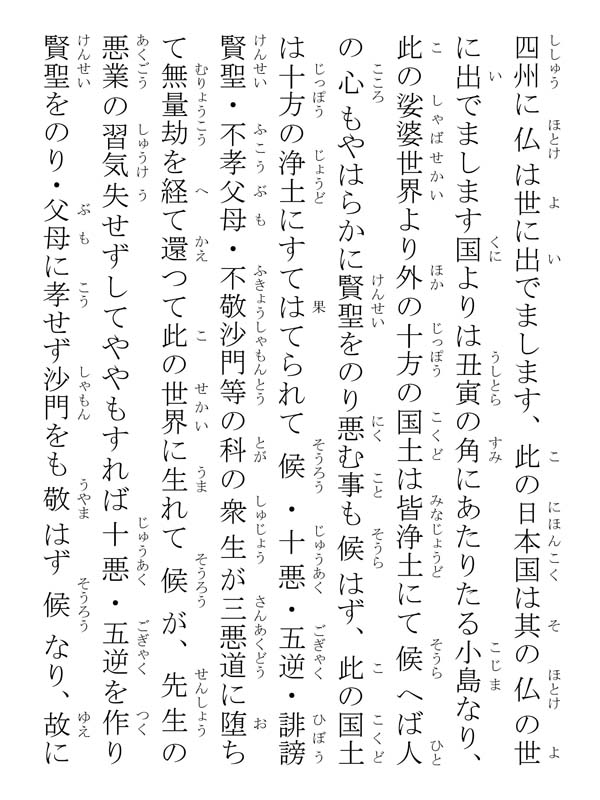 四州に仏は世に出でまします、此の日本国は其の仏の世
に出でまします国よりは丑寅の角にあたりたる小島なり、
此の娑婆世界より外の十方の国土は皆浄土にて候へば人
の心もやはらかに賢聖をのり悪む事も候はず、此の国土
は十方の浄土にすてはてられて候・十悪・五逆・誹謗
賢聖・不孝父母・不敬沙門等の科の衆生が三悪道に堕ち
て無量劫を経て還つて此の世界に生れて候が、先生の
悪業の習気失せずしてややもすれば十悪・五逆を作り
賢聖をのり・父母に孝せず沙門をも敬はず候なり、故に